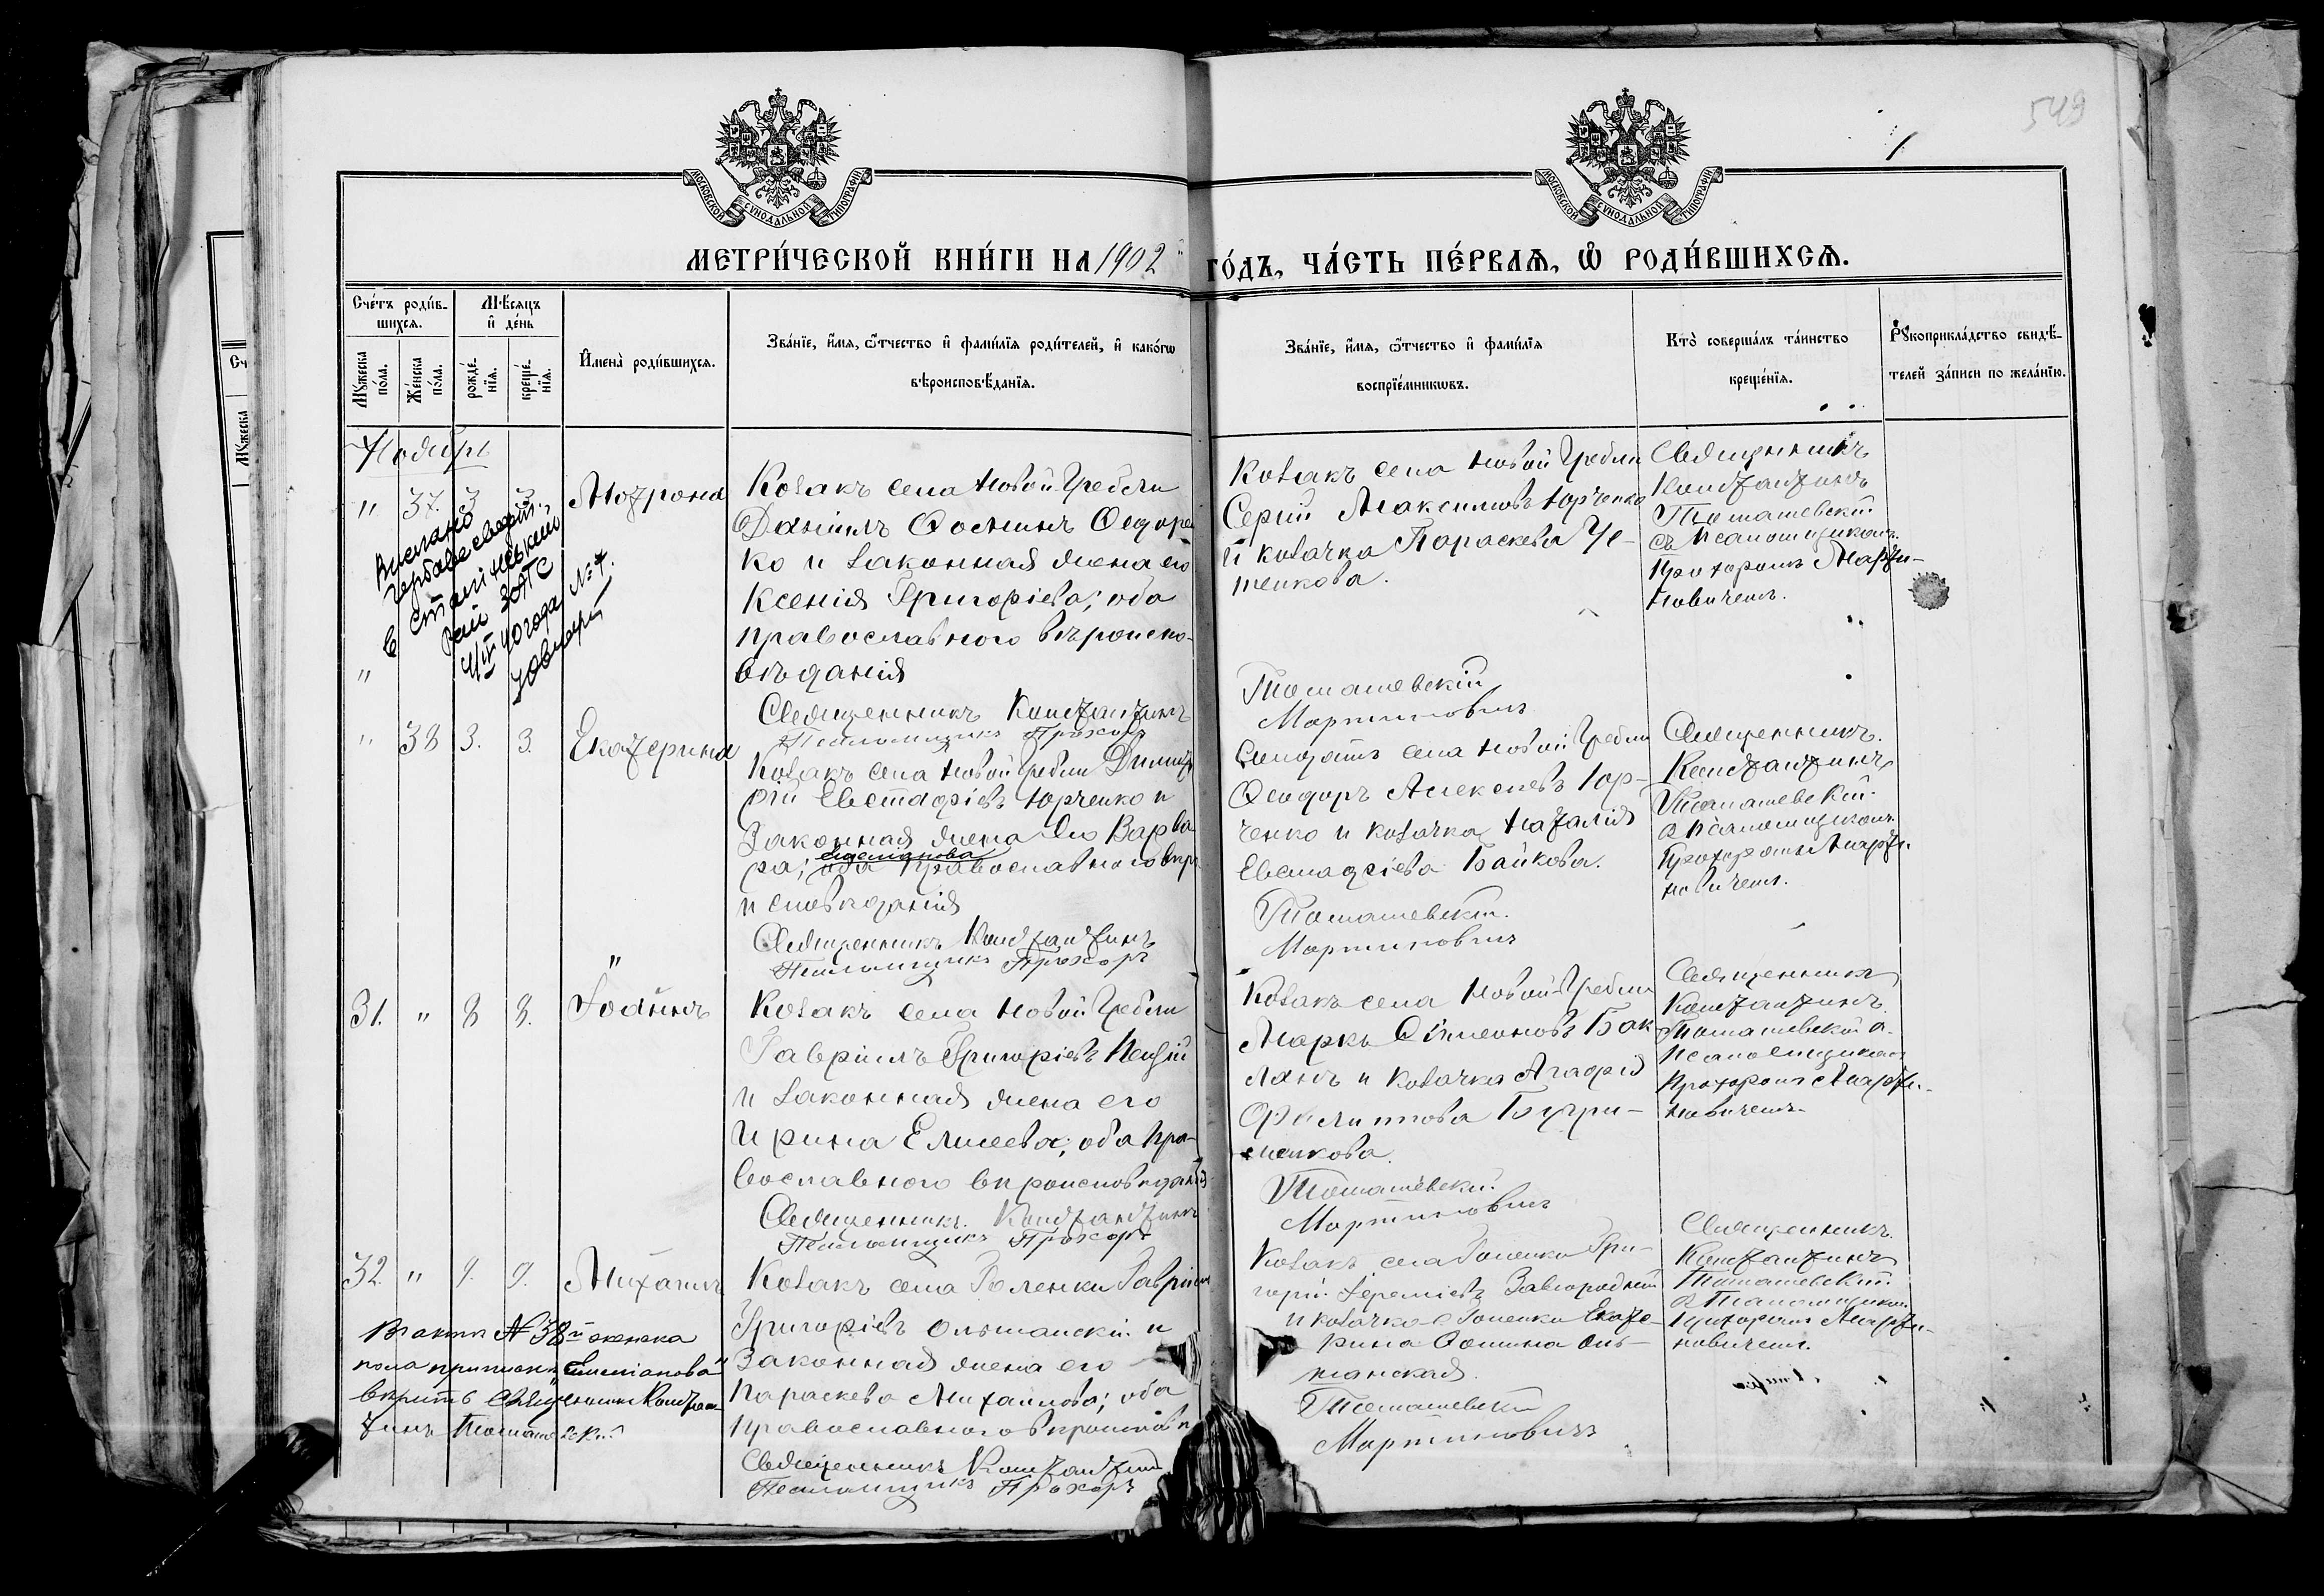 549
МОСКОВСКОЙ СѴНОДАЛЬНОЙ ТИПОГРАФІИ
МОСКОВСКОЙ СѴНОДАЛЬНОЙ ТИПОГРАФІИ
МЕТРИ́ЧЕСКОЙ КНИ́ГИ НА 1902 ГО́ДЪ, ЧА́СТЬ ПЕ́РВАѦ, Ѡ РОДИ́ВШИХСѦ.
Сче́тъ роди́в-
шихсѧ.
Мꙋ́жеска по́ла.
Же́нска по́ла.
Мѣ́сяцъ
и҆ де́нь
рожде́-
нїѧ.
креще́-
нїѧ.
И҆мена̀ роди́вшихсѧ.
Зва́нїе, и҆́мѧ, ѻ҆́тчество и҆ фами́лїѧ роди́телей, и҆ како́гѡ
вѣроисповѣ́данїѧ.
Зва́нїе, и҆́мѧ, ѻ҆́тчество и҆ фами́лїѧ
воспрїе́мникѡвъ.
Кто̀ соверша́лъ та́инство
креще́нїѧ.
Рꙋкоприкла́дство свидѣ́-
телей за́писи по жела́нїю.
Ноября
" 37. 3 3 Матрона
Козакъ села Новой-Гребли
Даніилъ Ѳоминъ Ѳедорен
ко и законная жена его
Ксенія Григоріева; оба
православнаго вѣроиспо-
вѣданія
Священникъ Константинъ
Псаломщикъ Прохоръ
Козакъ села Новой Гребли
Сергій Максимовъ Юрченко
и козачка Параскева Че-
пенкова.
Томашевскій
Мартиновичъ
Священникъ
Константинъ
Томашевскій
съ псаломщикомъ
Прохоромъ Марти-
новичемъ.
Выслано
в Сталінський
рай ЗАГС
40 года №
" 38 3. 3. Екатерина
Козакъ села Новой Гребли Димит
рій Евстафіевъ Юрченко и
законная жена его Варва
ра; оба православнаго вѣро
исповѣданія
Священникъ Константинъ
Псаломщикъ Прохоръ
Солдатъ села Новой Гребли
Ѳеодоръ Алексѣевъ Юр-
ченко и козачка Наталія
Евстафіева Байкова.
Томашевскій.
Мартиновичъ
Священникъ.
Константинъ
Томашевскій
съ псаломщикомъ
Прохоромъ Марти
новичемъ.
31. " 8 8. Іоаннъ
Козакъ села Новой Гребли
Гавріилъ Григоріевъ
и законная жена его
Ирина Елисеева; оба пра-
вославнаго вѣроисповѣданія
Священникъ. Константинъ
Псаломщикъ Прохоръ
Козакъ села Новой-Гребли
Маркъ Симеоновъ Бак
ланъ и козачка Агафія
Филиппова
Томашевскій
Мартиновичъ
Священникъ
Константинъ
Томашевскій съ
псаломщикомъ
Прохоромъ Марти-
новичемъ.
32. " 9. 9. Михаилъ
Козакъ села Голенки Гавріилъ
Григоріевъ Ольшанскій и
законная жена его
Параскева Михайлова; оба
православнаго вѣроисповѣ
Священникъ Константинъ
Псаломщикъ Прохоръ
Козакъ села Голенки Гри-
горій Іереміевъ Завгородній
и козачка с Голенки Екате-
рина Ѳомина Оль-
шанская.
Томашевскій
Мартиновичъ
Священникъ.
Константинъ
Томашевскій
съ Псаломщикомъ
Прохоромъ Марти-
новичемъ.
В актѣ № 38й женска
пола
вѣрить Священникъ Констан-
тинъ Томашевскій